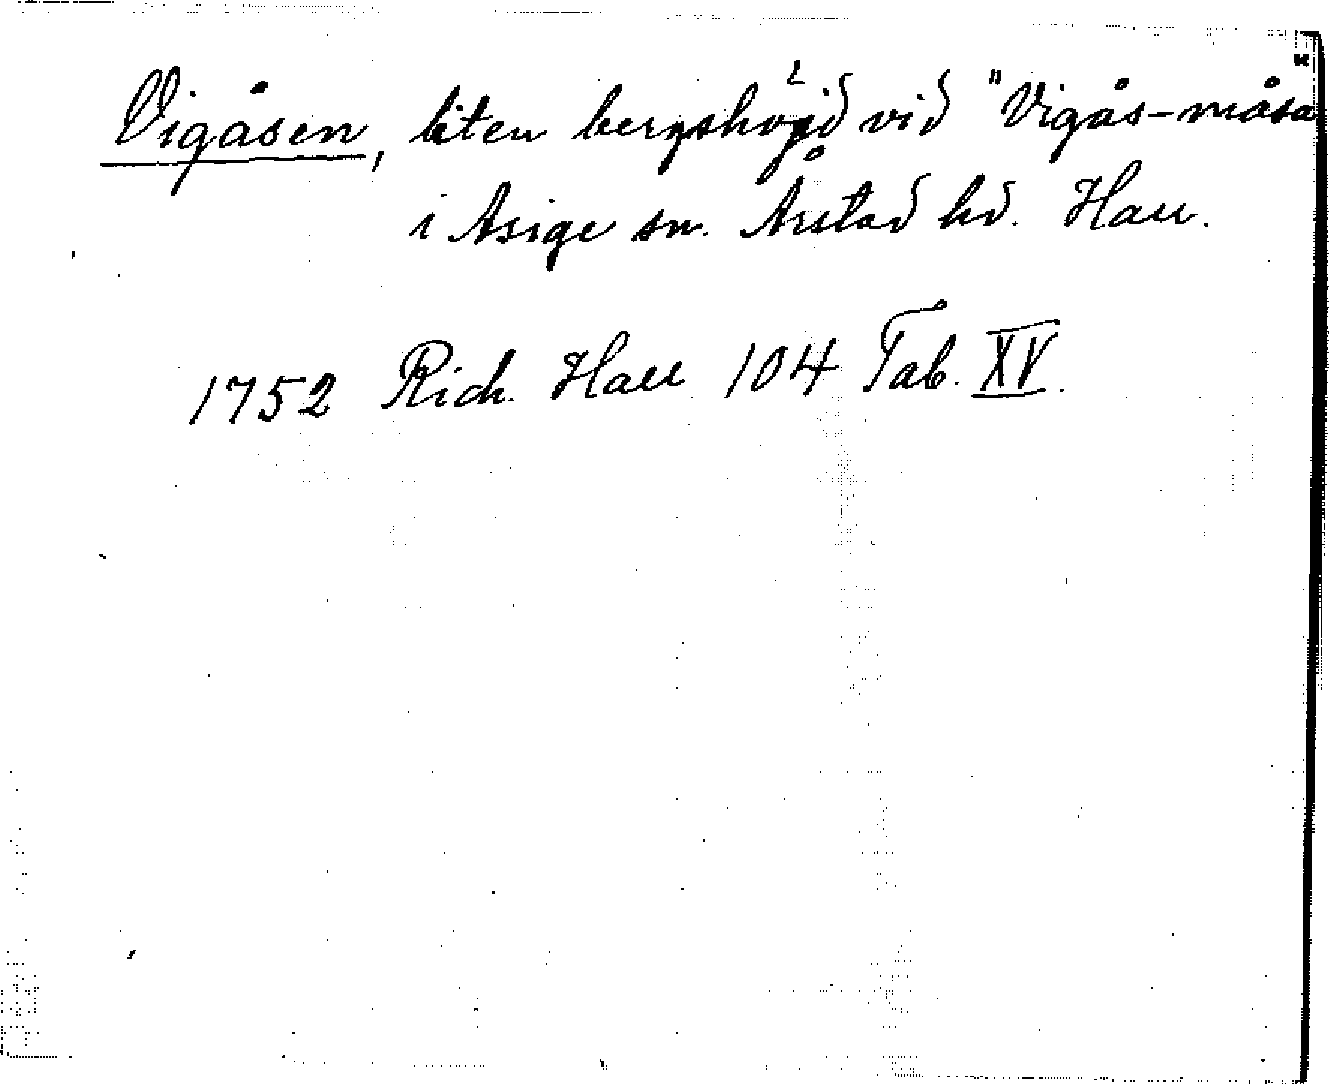 Vigåsen, liten bergshöjd vid "Vigås-måsa"
i Asige sn. Årstad hd. Hall.
1752 Rich. Hall 104 Tab. XV.